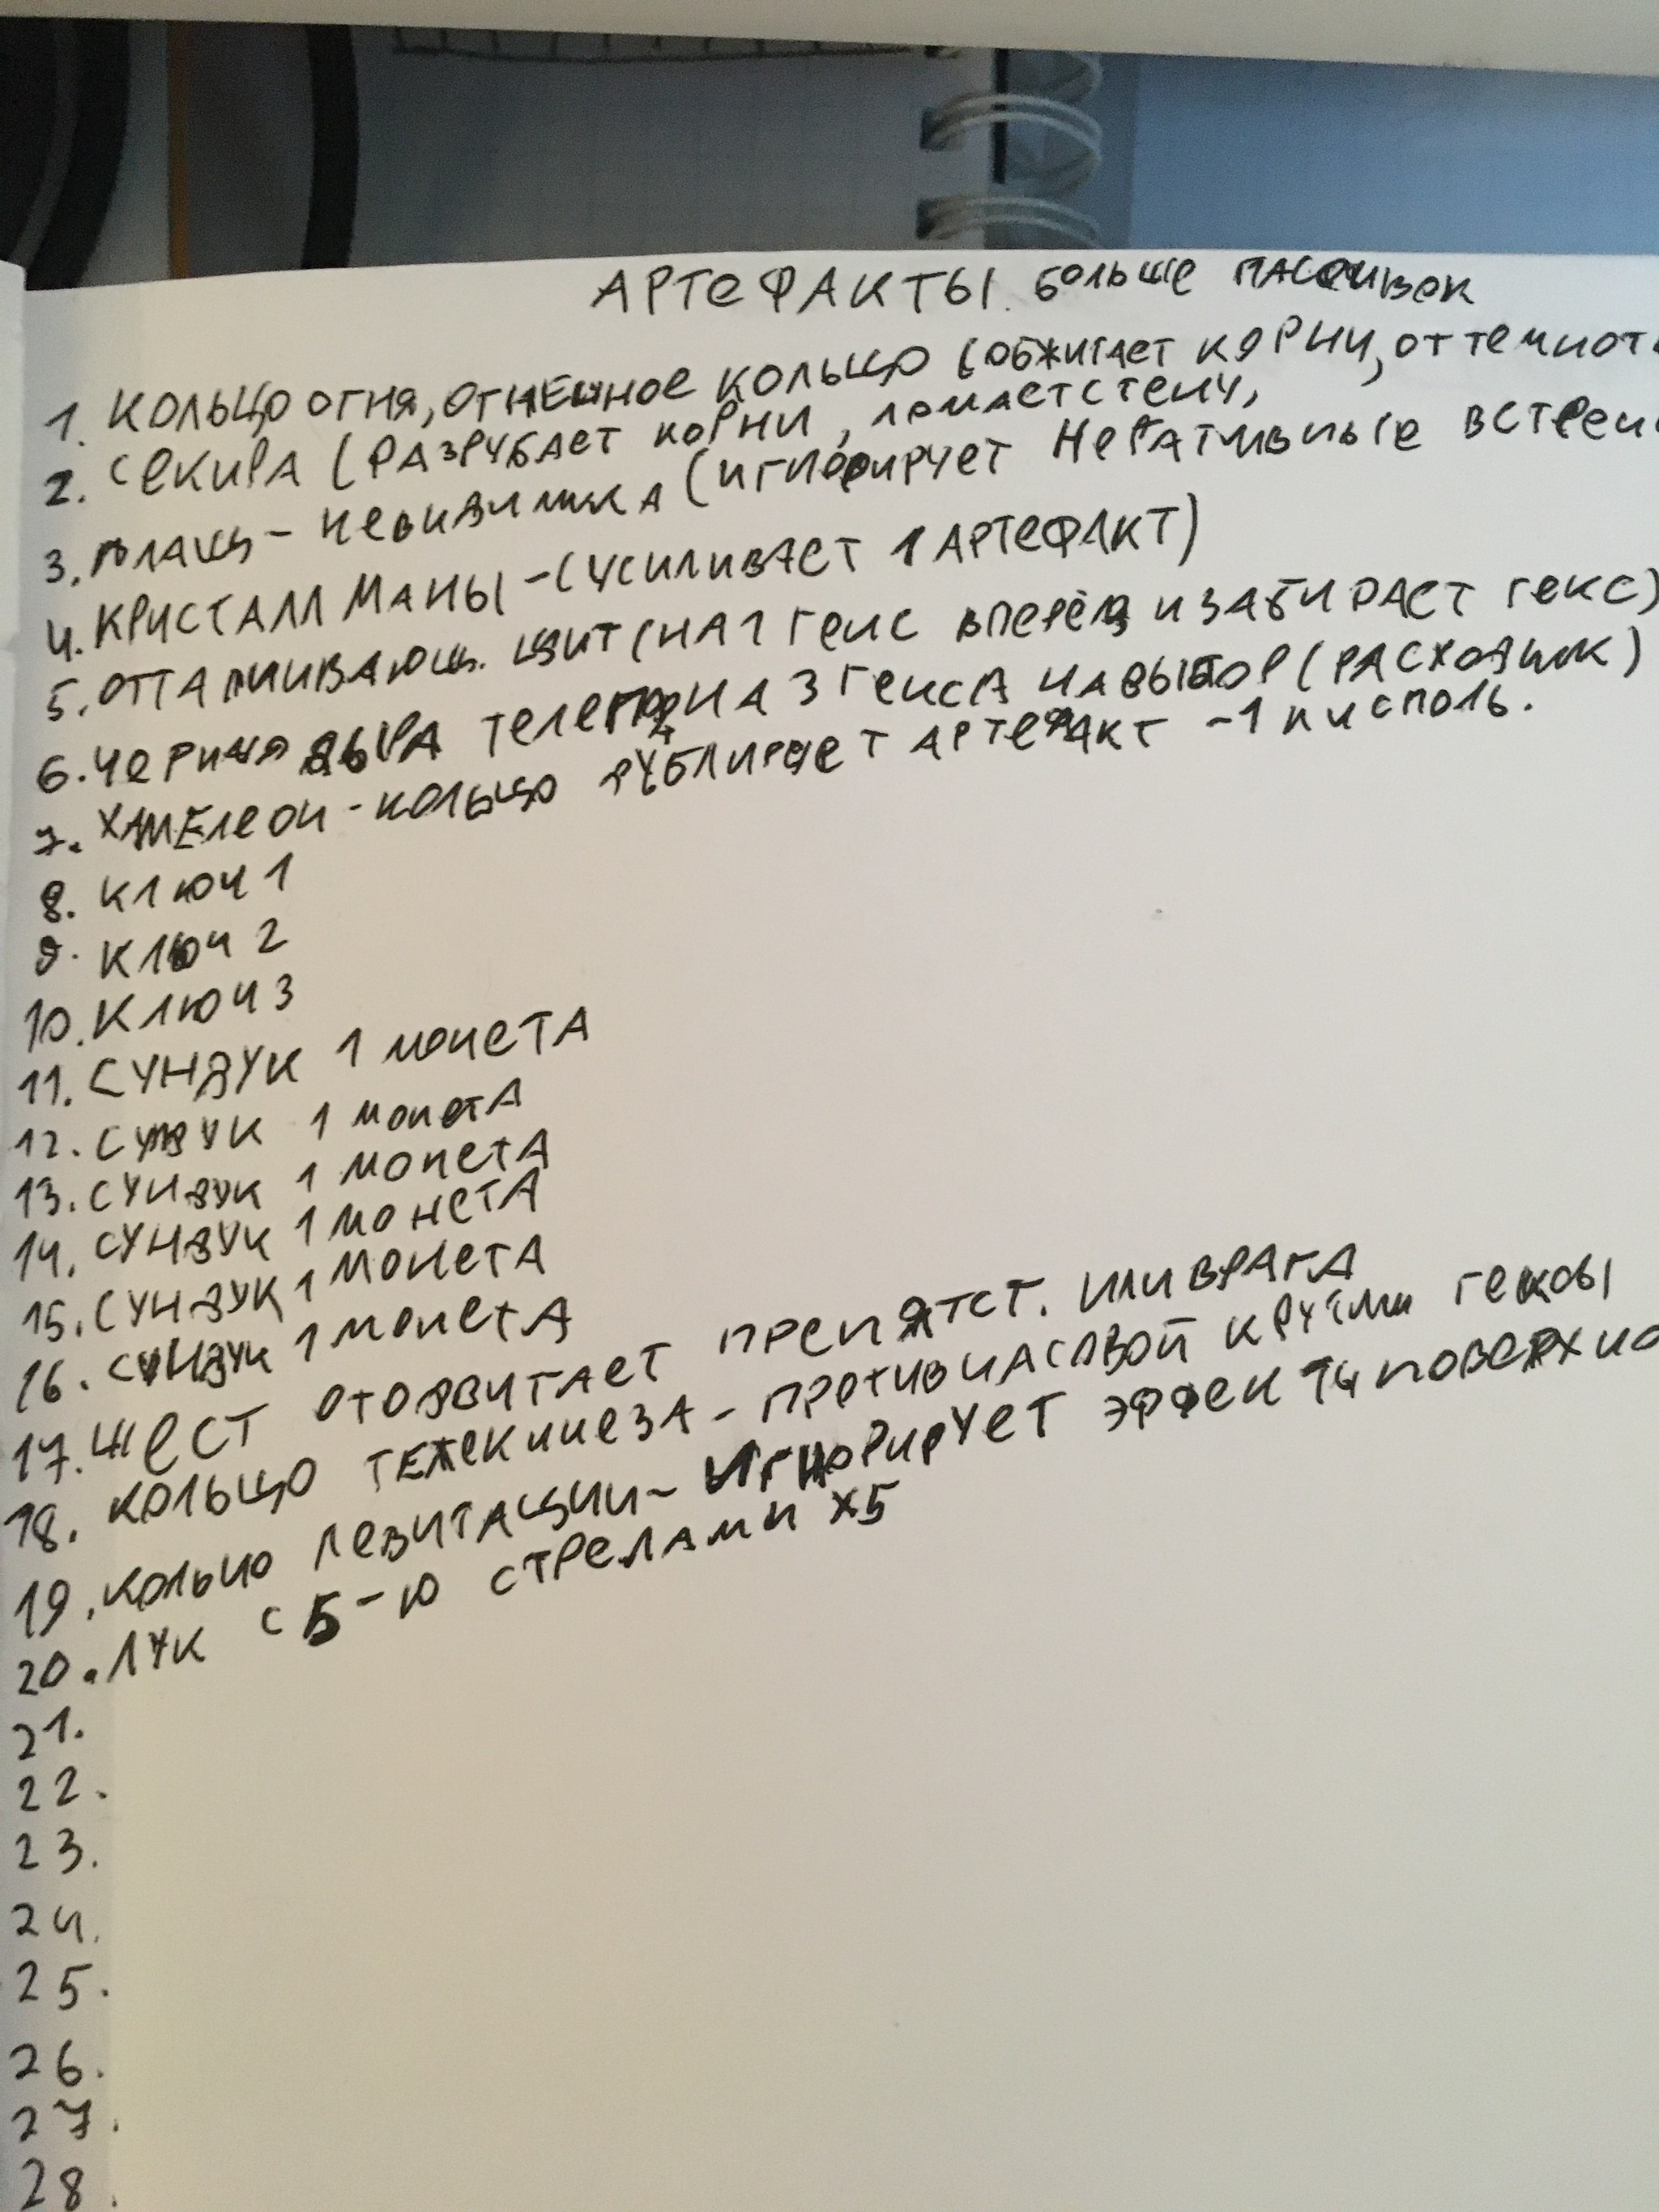 АРТЕФАКТЫ. БОЛЬШЕ ПАССИВОК
1. КОЛЬЦО ОГНЯ, ОГНЕННОЕ КОЛЬЦО (ОБЖИГАЕТ КОРНИ, ОТ ТЕМНОТ
2. СЕКИРА (РАЗРУБАЕТ КОРНИ, ЛОМАЕТ СТЕНУ,
3. ПЛАЩ-НЕВИДИМКА (ИГНОРИРУЕТ НЕГАТИВНЫЕ ВСТРЕЧ
4. КРИСТАЛЛ МАНЫ - (УСИЛИВАЕТ 1 АРТЕФАКТ)
5. ОТТАЛКИВАЮЩ. ЩИТ (НА 1 ГЕКС ВПЕРЁД И ЗАБИРАЕТ ГЕКС)
6. ЧЕРНАЯ ДЫРА ТЕЛЕПОРТ НА 3 ГЕКСА НА ВЫБОР (РАСХОДНИК)
7. ХАМЕЛЕОН-КОЛЬЦО ДУБЛИРУЕТ АРТЕФАКТ -1 К ИСПОЛЬ.
8. КЛЮЧ 1
9. КЛЮЧ 2
10. КЛЮЧ 3
11. СУНДУК 1 МОНЕТА
12. СУНДУК 1 МОНЕТА
13. СУНДУК 1 МОНЕТА
14. СУНДУК 1 МОНЕТА
15. СУНДУК 1 МОНЕТА
16. СУНДУК 1 МОНЕТА
17. ШЕСТ ОТОДВИГАЕТ ПРЕПЯТСТ. ИЛИ ВРАГА
18. КОЛЬЦО - ПРОТИВ ЧАСОВОЙ КРУТИМ ГЕКСЫ
19. КОЛЬЦО ЛЕВИТАЦИИ - ИГНОРИРУЕТ ЭФФЕКТЫ ПОВЕРХНО
20. ЛУК С 5-Ю СТРЕЛАМИ Х5
21.
22.
23.
24.
25.
26.
27.
28.